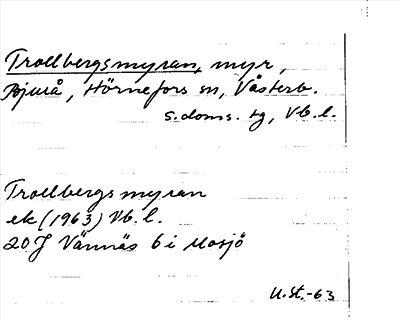 Trollbergsmyran, myr,
Bjurå, Hörnefors sn, Västerb.
s. doms. tg, Vb. l.
Trollbergsmyran
ek (1963) Vb. l.
20J Vännäs 6 i Mosjö
U.St.-63